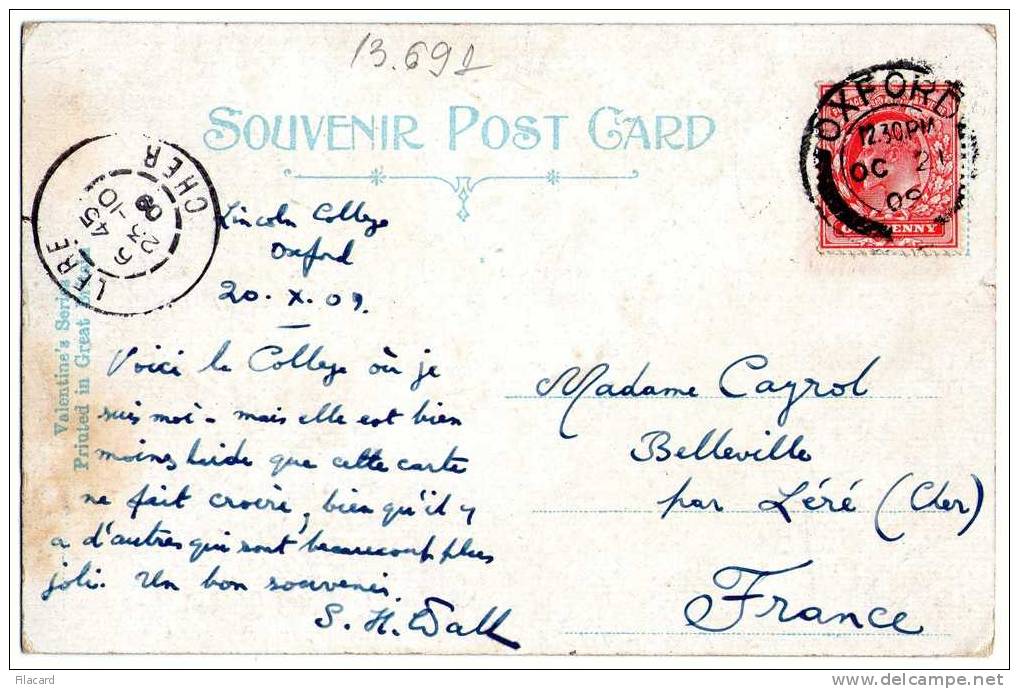 13.691
SOUVENIR POST CARD
OXFORD
12.30 PM
OC 21
09
ONE PENNY
LERE
CHER
6 45
23-10
09
Valentine's Series
Printed in Great
Lincoln College
Oxford
20. X. 09.
Voici le College où je
suis moi - mais elle est bien
moins laide que cette carte
ne fait croire, bien qu'il y
a d'autres qui sont beaucoup plus
joli. Un bon souvenir.
S. H. Wall
Madame Cayrol
Belleville
par Léré (Cher)
France
Filacard
www.delcampe.net